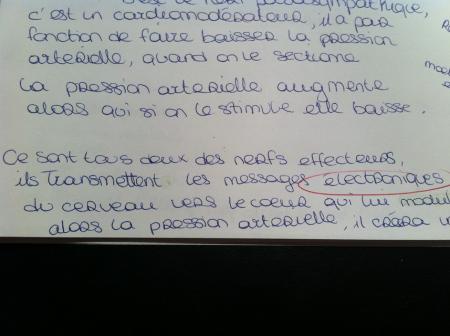 c'est le nerf parasympathique,
c'est un cardiomodérateur, il a par
fonction de faire baisser la pression
artérielle, quand on le sectionne
la pression artérielle augmente
alors qui si on le stimule elle baisse.
Ce sont tous deux des nerfs effecteurs,
ils transmettent les messages électroniques
du cerveau vers le coeur qui lui modul
alors la pression artérielle, il créra u